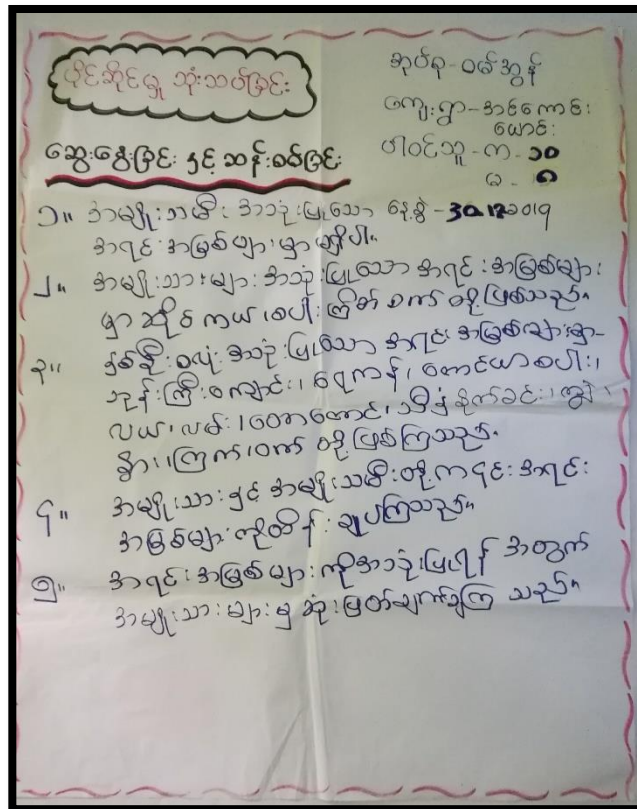 ပိုင်ဆိုင်မှု သုံးသပ်ခြင်း
ဆွေးနွေးခြင်း နှင့် ဆန်းစစ်ခြင်း
အုပ်စု - ဝမ်အွန်
ကျေးရွာ - အင်ကောင်း
ယောင်း
ပါဝင်သူ - က - ၁၀
မ - ၈
နေ့စွဲ - 30.12.2019
၁။ အမျိုးသမီး အသုံးပြုသော
အရင်းအမြစ်များမှာ မရှိပါ။
၂။ အမျိုးသားများ အသုံးပြုသော အရင်းအမြစ်များ
မှာ ဆိုင်ကယ်၊ စပါးကြိတ်စက် တို့ဖြစ်သည်။
၃။ နှစ်မျိုးစလုံး အသုံးပြုသော အရင်းအမြစ်များမှာ-
ဘုန်းကြီးကျောင်း၊ ရေကန်၊ တောင်ယာစပါး၊
လယ်၊ လမ်း၊ တောတောင်၊ သီးနှံစိုက်ခင်း၊ ကျွဲ၊
နွား၊ ကြက်၊ ဝက် တို့ဖြစ်ကြသည်။
၄။ အမျိုးသားနှင့် အမျိုးသမီးတို့က၎င်းအရင်း
အမြစ်များကိုထိန်းချုပ်ကြသည်။
၅။ အရင်းအမြစ်များကိုအသုံးပြုရန် အတွက်
အမျိုးသားများမှ ဆုံးဖြတ်ချက်ချကြသည်။